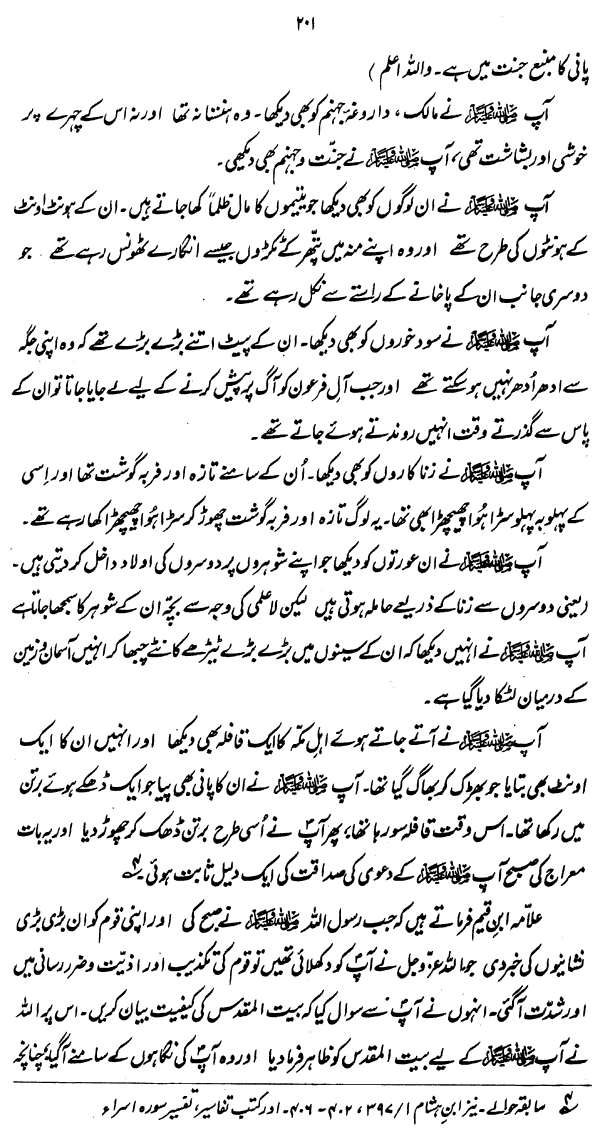 ۲۰۱
پانی کا منبع جنت میں ہے۔ واللہ اعلم )
آپ ﷺ نے مالک، داروغۂ جہنم کو بھی دیکھا۔ وہ ہنستا نہ تھا اور نہ اس کے چہرے پر
خوشی اور بشاشت تھی، آپ ﷺ نے جنّت و جہنم بھی دیکھی۔
آپ ﷺ نے ان لوگوں کو بھی دیکھا جو یتیموں کا مال ظلماً کھا جاتے ہیں۔ ان کے ہونٹ اونٹ
کے ہونٹوں کی طرح تھے اور وہ اپنے منہ میں پتّھر کے ٹکڑوں جیسے انگارے ٹھونس رہے تھے جو
دوسری جانب ان کے پاخانے کے راستے سے نکل رہے تھے۔
آپ ﷺ نے سود خوروں کو بھی دیکھا۔ ان کے پیٹ اتنے بڑے بڑے تھے کہ وہ اپنی جگہ
سے ادھر اُدھر نہیں ہو سکتے تھے اور جب آلِ فرعون کو آگ پر پیش کرنے کے لیے لے جایا جاتا تو ان کے
پاس سے گذرتے وقت انہیں روندتے ہوئے جاتے تھے۔
آپ ﷺ نے زنا کاروں کو بھی دیکھا۔ اُن کے سامنے تازہ اور فربہ گوشت تھا اور اِسی
کے پہلو بہ پہلو سڑا ہُوا چھیچھڑا بھی تھا۔ یہ لوگ تازہ اور فربہ گوشت چھوڑ کر سڑا ہُوا چھیچھڑا کھا رہے تھے۔
آپ ﷺ نے ان عورتوں کو دیکھا جو اپنے شوہروں پر دوسروں کی اولاد داخل کر دیتی ہیں۔
(یعنی دوسروں سے زنا کے ذریعے حاملہ ہوتی ہیں لیکن لاعلمی کی وجہ سے بچّہ ان کے شوہر کا سمجھا جاتا ہے
آپ ﷺ نے انہیں دیکھا کہ ان کے سینوں میں بڑے بڑے ٹیڑھے کانٹے چبھا کر انہیں آسمان و زمین
کے درمیان لٹکا دیا گیا ہے۔
آپ ﷺ نے آتے جاتے ہوئے اہلِ مکّہ کا ایک قافلہ بھی دیکھا اور انہیں ان کا ایک
اونٹ بھی بتایا جو بھڑک کر بھاگ گیا تھا۔ آپ ﷺ نے ان کا پانی بھی پیا جو ایک ڈھکے ہوئے برتن
میں رکھا تھا۔ اس وقت قافلہ سو رہا تھا، پھر آپؐ نے اُسی طرح برتن ڈھک کر چھوڑ دیا اور یہ بات
معراج کی صبح آپ ﷺ کے دعوی کی صداقت کی ایک دلیل ثابت ہوئی ۴؎
علاّمہ ابنِ قیم فرماتے ہیں کہ جب رسول اللہ ﷺ نے صبح کی اور اپنی قوم کو ان بڑی بڑی
نشانیوں کی خبر دی جو اللہ عزّ و جل نے آپؐ کو دکھلائی تھیں تو قوم کی تکذیب اور اذیّت و ضرر رسانی میں
اور شدّت آ گئی۔ انہوں نے آپؐ سے سوال کیا کہ بیت المقدس کی کیفیت بیان کریں۔ اس پر اللہ
نے آپ ﷺ کے لیے بیت المقدس کو ظاہر فرما دیا اور وہ آپؐ کی نگاہوں کے سامنے آ گیا؛ چنانچہ
۴؎ سابقہ حوالے۔ نیز ابنِ ہشام ۱/ ۳۹۷، ۴۰۲ - ۴۰۶۔ اور کتب تفاسیر، تفسیر سورہ اسراء